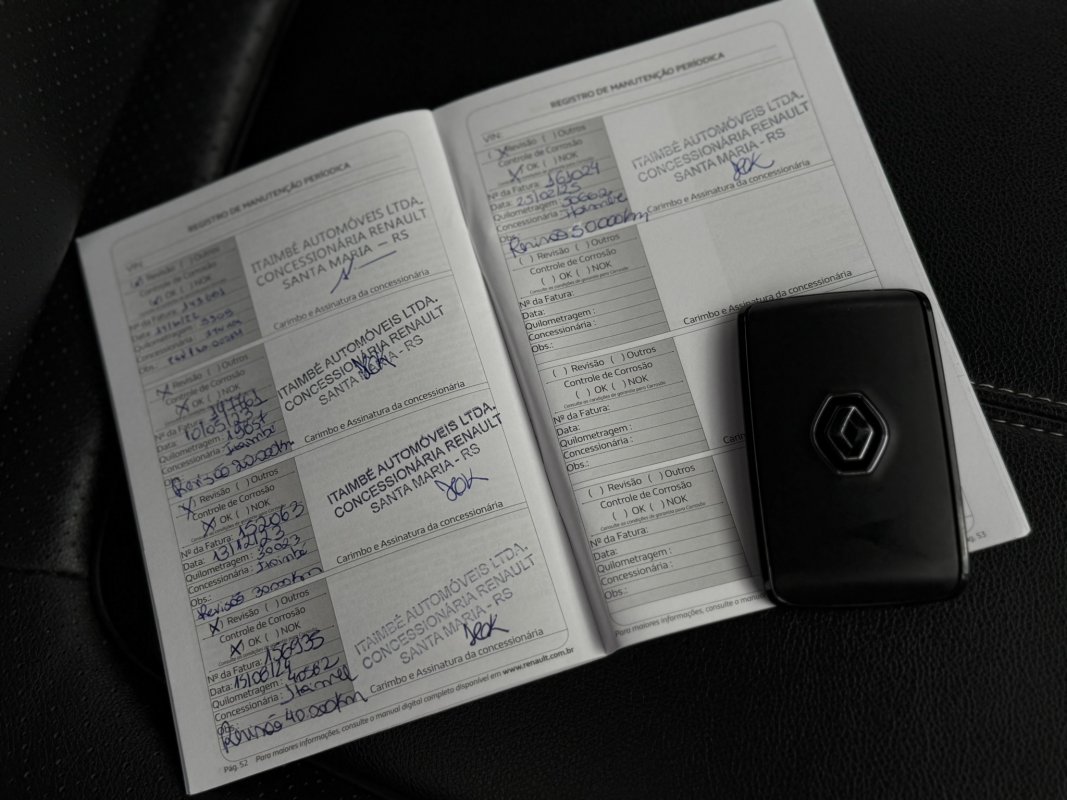 REGISTRO DE MANUTENÇÃO PERÍODICA
VIN:
Revisão ( ) Outros
Controle de Corrosão
OK ( ) NOK
Nº da Fatura:
Data:
Quilometragem :
Concessionária :
Obs.:
ITAIMBÉ AUTOMÓVEIS LTDA.
CONCESSIONÁRIA RENAULT
SANTA MARIA – RS
Carimbo e Assinatura da concessionária
(X) Revisão ( ) Outros
Controle de Corrosão
(X) OK ( ) NOK
Nº da Fatura: 147761
Data: 10/05/23
Quilometragem :
Concessionária : Itaimbé
Obs.: Revisão 20.000km
ITAIMBÉ AUTOMÓVEIS LTDA.
CONCESSIONÁRIA RENAULT
SANTA MARIA - RS
Carimbo e Assinatura da concessionária
(X) Revisão ( ) Outros
Controle de Corrosão
(X) OK ( ) NOK
Consulte as condições de garantia para Corrosão
Nº da Fatura: 152063
Data: 13/12/23
Quilometragem : 30023
Concessionária : Itaimbé
Obs.: Revisão 30.000km
ITAIMBÉ AUTOMÓVEIS LTDA.
CONCESSIONÁRIA RENAULT
SANTA MARIA - RS
Carimbo e Assinatura da concessionária
(X) Revisão ( ) Outros
Controle de Corrosão
(X) OK ( ) NOK
Consulte as condições de garantia para Corrosão
Nº da Fatura: 156935
Data: 15/08/24
Quilometragem : 40502
Concessionária :
Obs.: Revisão 40.000km
ITAIMBÉ AUTOMÓVEIS LTDA.
CONCESSIONÁRIA RENAULT
SANTA MARIA - RS
Carimbo e Assinatura da concessionária
Pág. 52 Para maiores informações, consulte o manual digital completo disponível em www.renault.com.br
REGISTRO DE MANUTENÇÃO PERÍODICA
VIN:
(X) Revisão ( ) Outros
Controle de Corrosão
(X) OK ( ) NOK
Nº da Fatura: 161024
Data: 25/02/25
Quilometragem :
Concessionária : Itaimbé
Obs.: Revisão 50.000km
ITAIMBÉ AUTOMÓVEIS LTDA.
CONCESSIONÁRIA RENAULT
SANTA MARIA - RS
Carimbo e Assinatura da concessionária
( ) Revisão ( ) Outros
Controle de Corrosão
( ) OK ( ) NOK
Consulte as condições de garantia para Corrosão
Nº da Fatura:
Data:
Quilometragem :
Concessionária :
Obs.:
Carimbo e Assinatura da concessionária
( ) Revisão ( ) Outros
Controle de Corrosão
( ) OK ( ) NOK
Consulte as condições de garantia para Corrosão
Nº da Fatura:
Data:
Quilometragem :
Concessionária :
Obs.:
( ) Revisão ( ) Outros
Controle de Corrosão
( ) OK ( ) NOK
Consulte as condições de garantia para Corrosão
Nº da Fatura:
Data:
Quilometragem :
Concessionária :
Obs.:
Para maiores informações, consulte o manual
Pág. 53